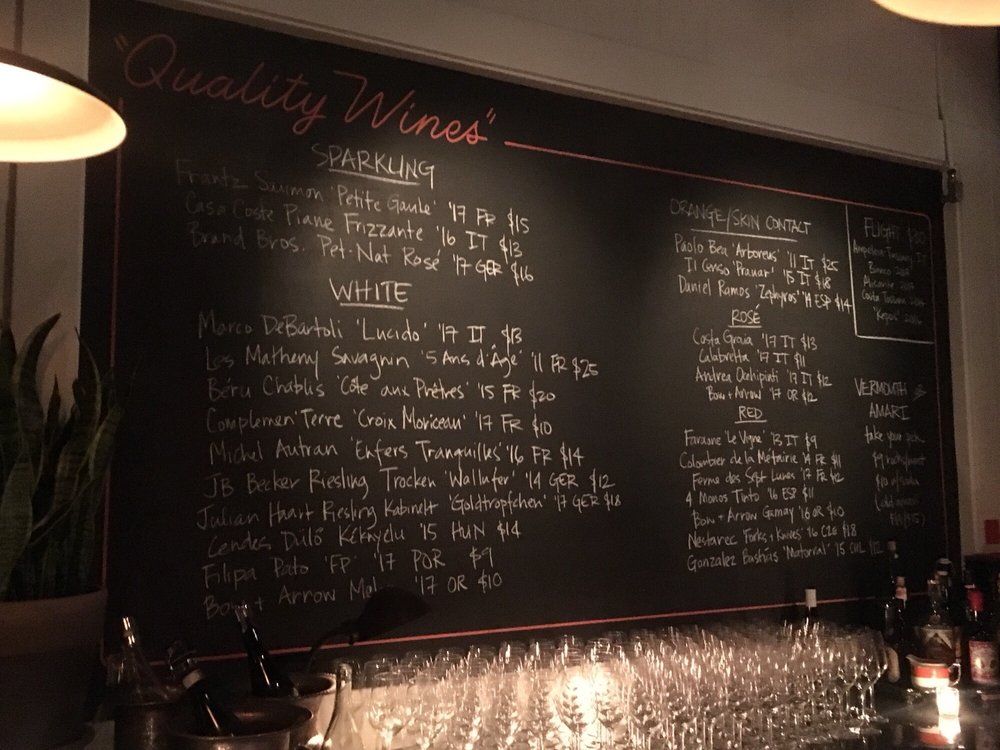 "Quality Wines"
SPARKLING
Frantz Saumon 'Petite Gaule' '17 FR $15
Casa Coste Piane Frizzante '16 IT $13
Brand Bros. Pet-Nat Rosé '17 GER $16
WHITE
Marco DeBartoli 'Lucido' '17 IT $13
Les Matheny Savagnin '5 Ans d'Âge' '11 FR $25
Béru Chablis 'Côte aux Prêtres' '15 FR $20
Complemen'Terre 'Croix Moriceau' '17 FR $10
Michel Autran 'Enfers Tranquilles' '16 FR $14
JB Becker Riesling Trocken 'Wallufer' '14 GER $12
Julian Haart Riesling Kabinett 'Goldtröpfchen' '17 GER $18
Cendes Dűlő Kéknyelu '15 HUN $14
Filipa Pato 'FP' '17 POR $9
Bow + Arrow '17 OR $10
ORANGE/SKIN CONTACT
Paolo Bea 'Arboreus' '11 IT $25
Il Censo 'Praruar' '15 IT $18
Daniel Ramos 'Zephyros' '14 ESP $14
ROSÉ
Costa Graia '17 IT $13
Calabretta '17 IT $11
Andrea Occhipinti '17 IT $12
Bow + Arrow '17 OR $12
RED
Faraone 'Le Vigne' '13 IT $9
Colombier de la Métairie '14 FR $11
Ferme des Sept Lunes '17 FR $12
4 Monos Tinto '16 ESP $11
Bow + Arrow Gamay '16 OR $10
Nestarec 'Forks + Knives' '16 CZE $18
Gonzalez Bastías 'Matorral' '15 CHL $12
FLIGHT $30
Ampeleia-Tuscany IT
Bianco
Alicante
Costa Toscana
"Kepos"
VERMOUTH
AMARI
take your pick